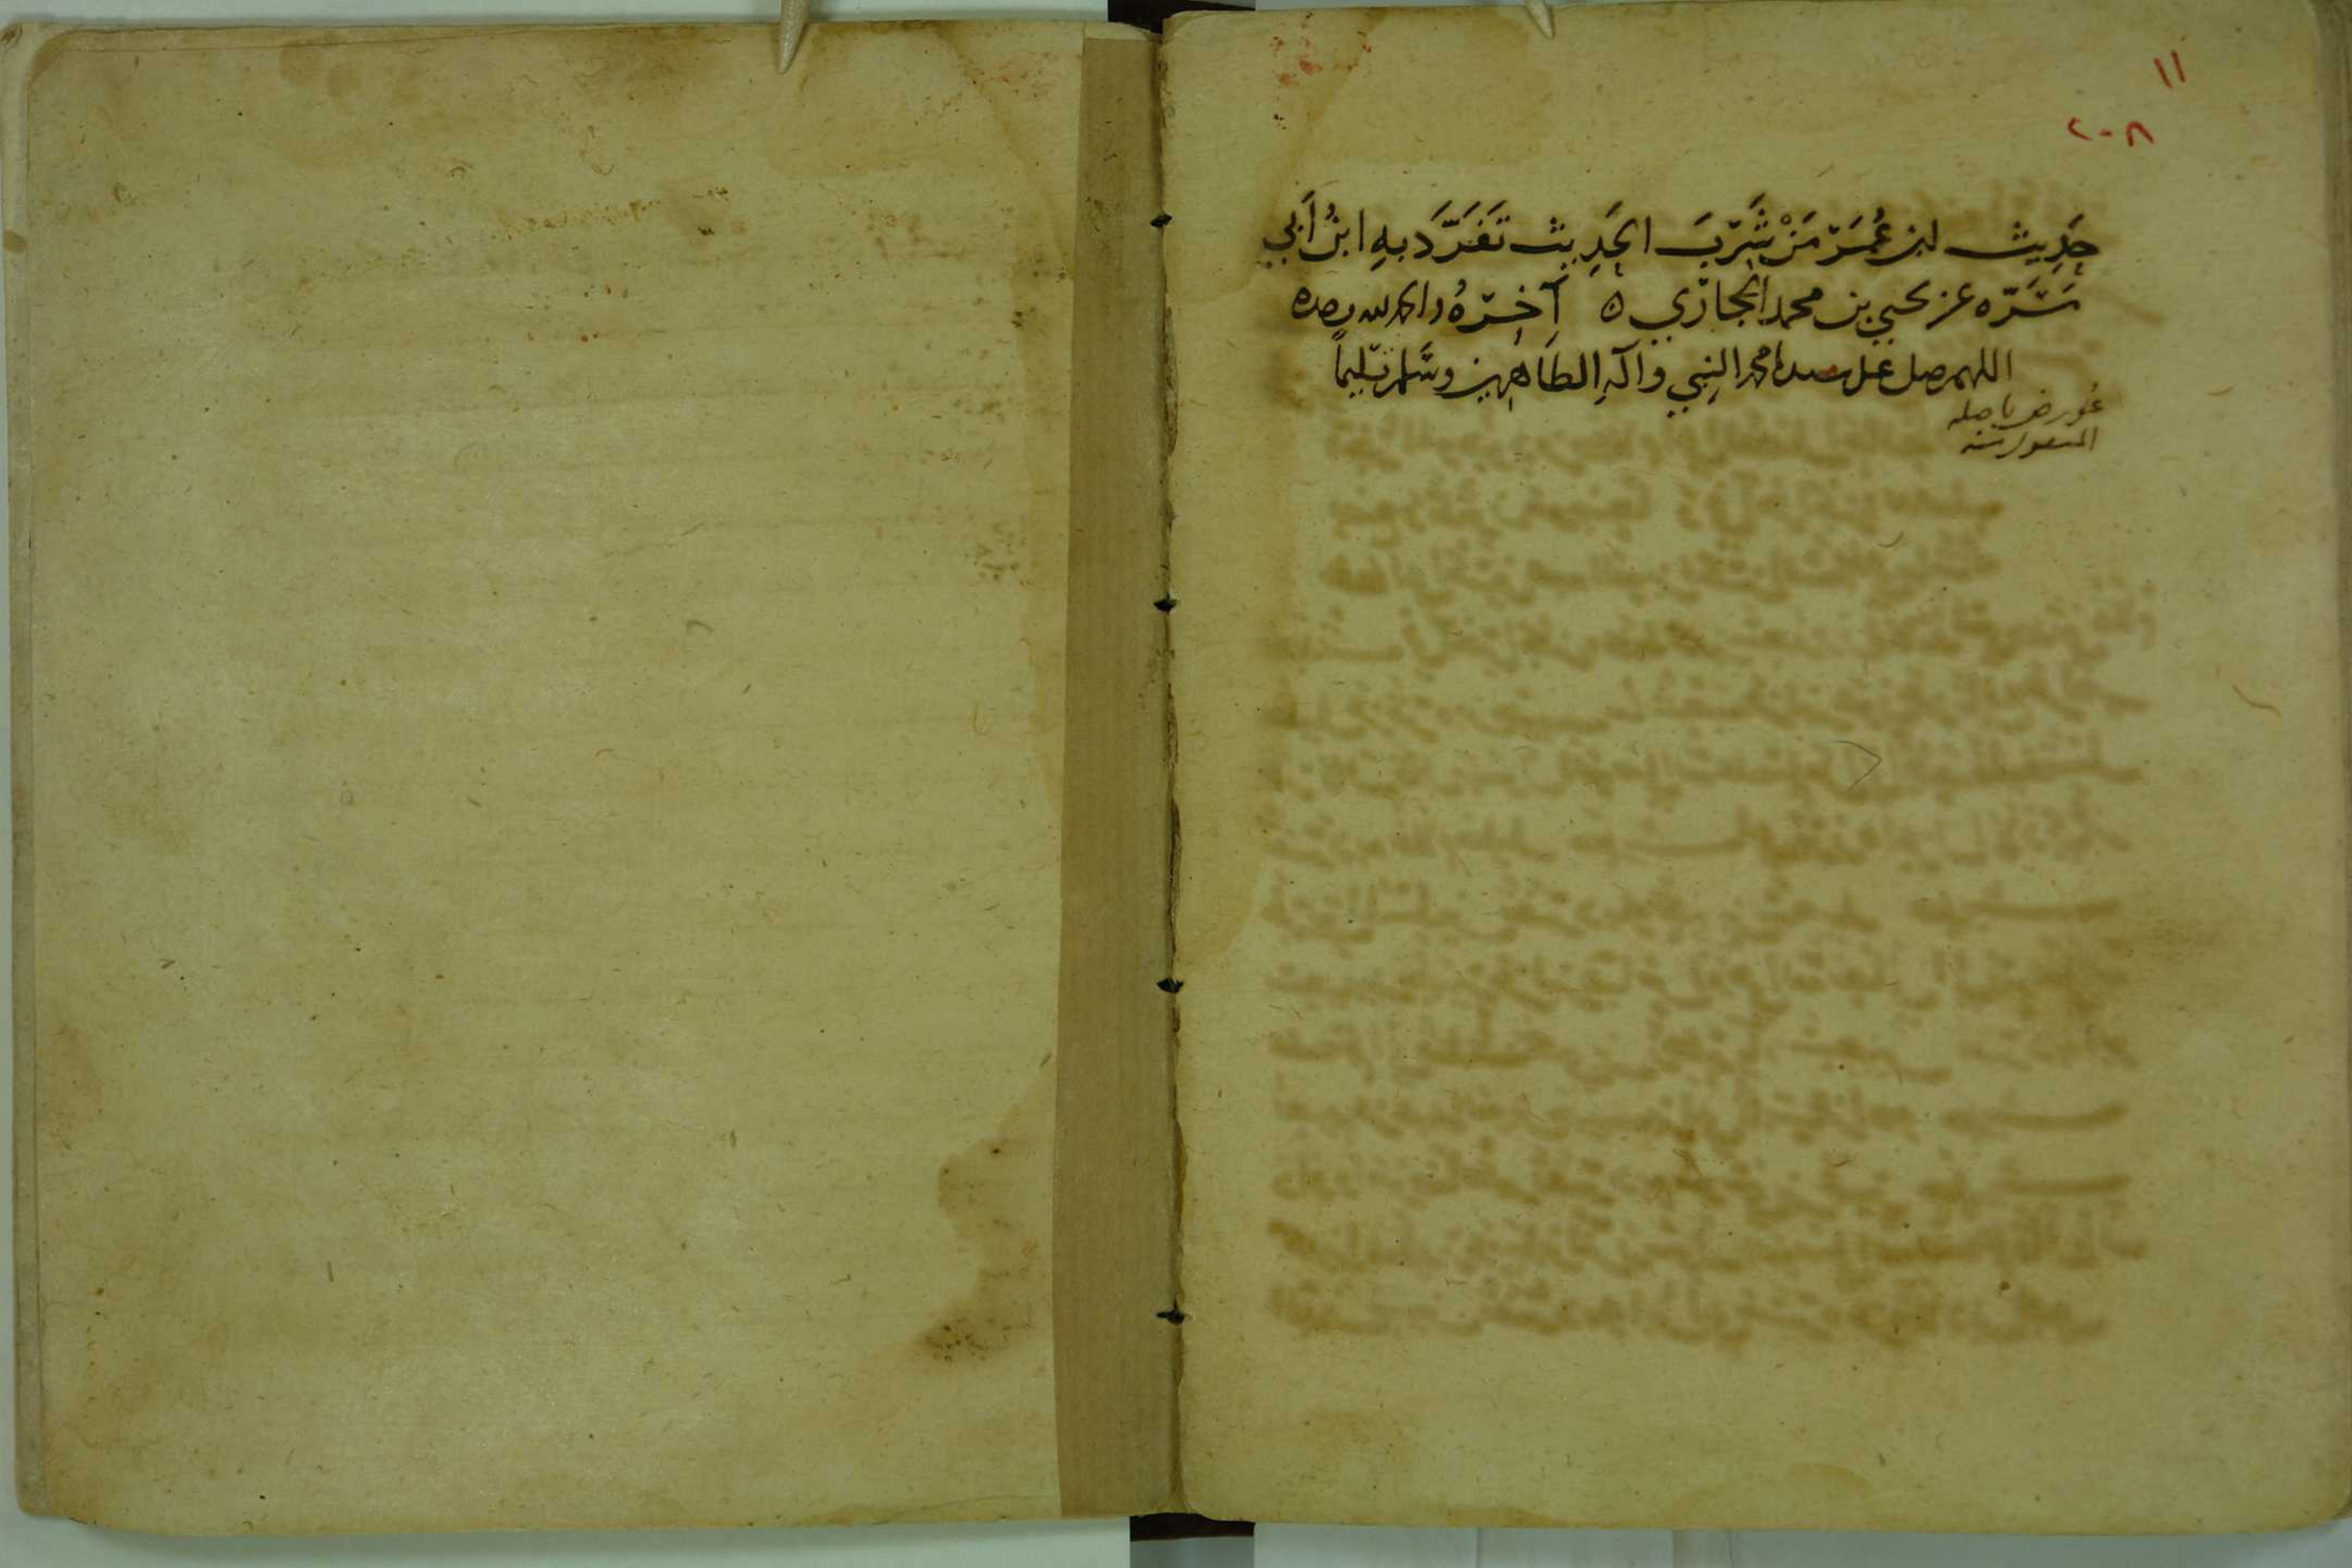 ١١
٢٠٨
حَدِيث ابن عُمَرَ مَنْ شَرِبَ الحَدِيث تَفَرَّدَ بِهِ ابنُ أَبي
مَسَرّه عن يحيى بن محمد الجارِي ه آخِرُهُ والحمد لله وحده
اللهم صل على سيدنا محمد النبي وآلهِ الطَاهِرين وسَلم تسليماً
عُورض باصله
المنقول منه